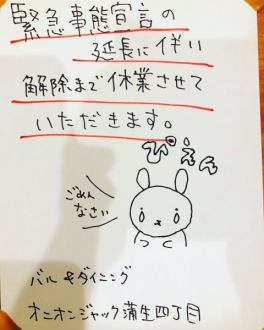 緊急事態宣言の
延長に伴い
解除まで休業させて
いただきます。
ぴえん
ごめん
なさい
バル&ダイニング
オニオンジャック蒲生四丁目